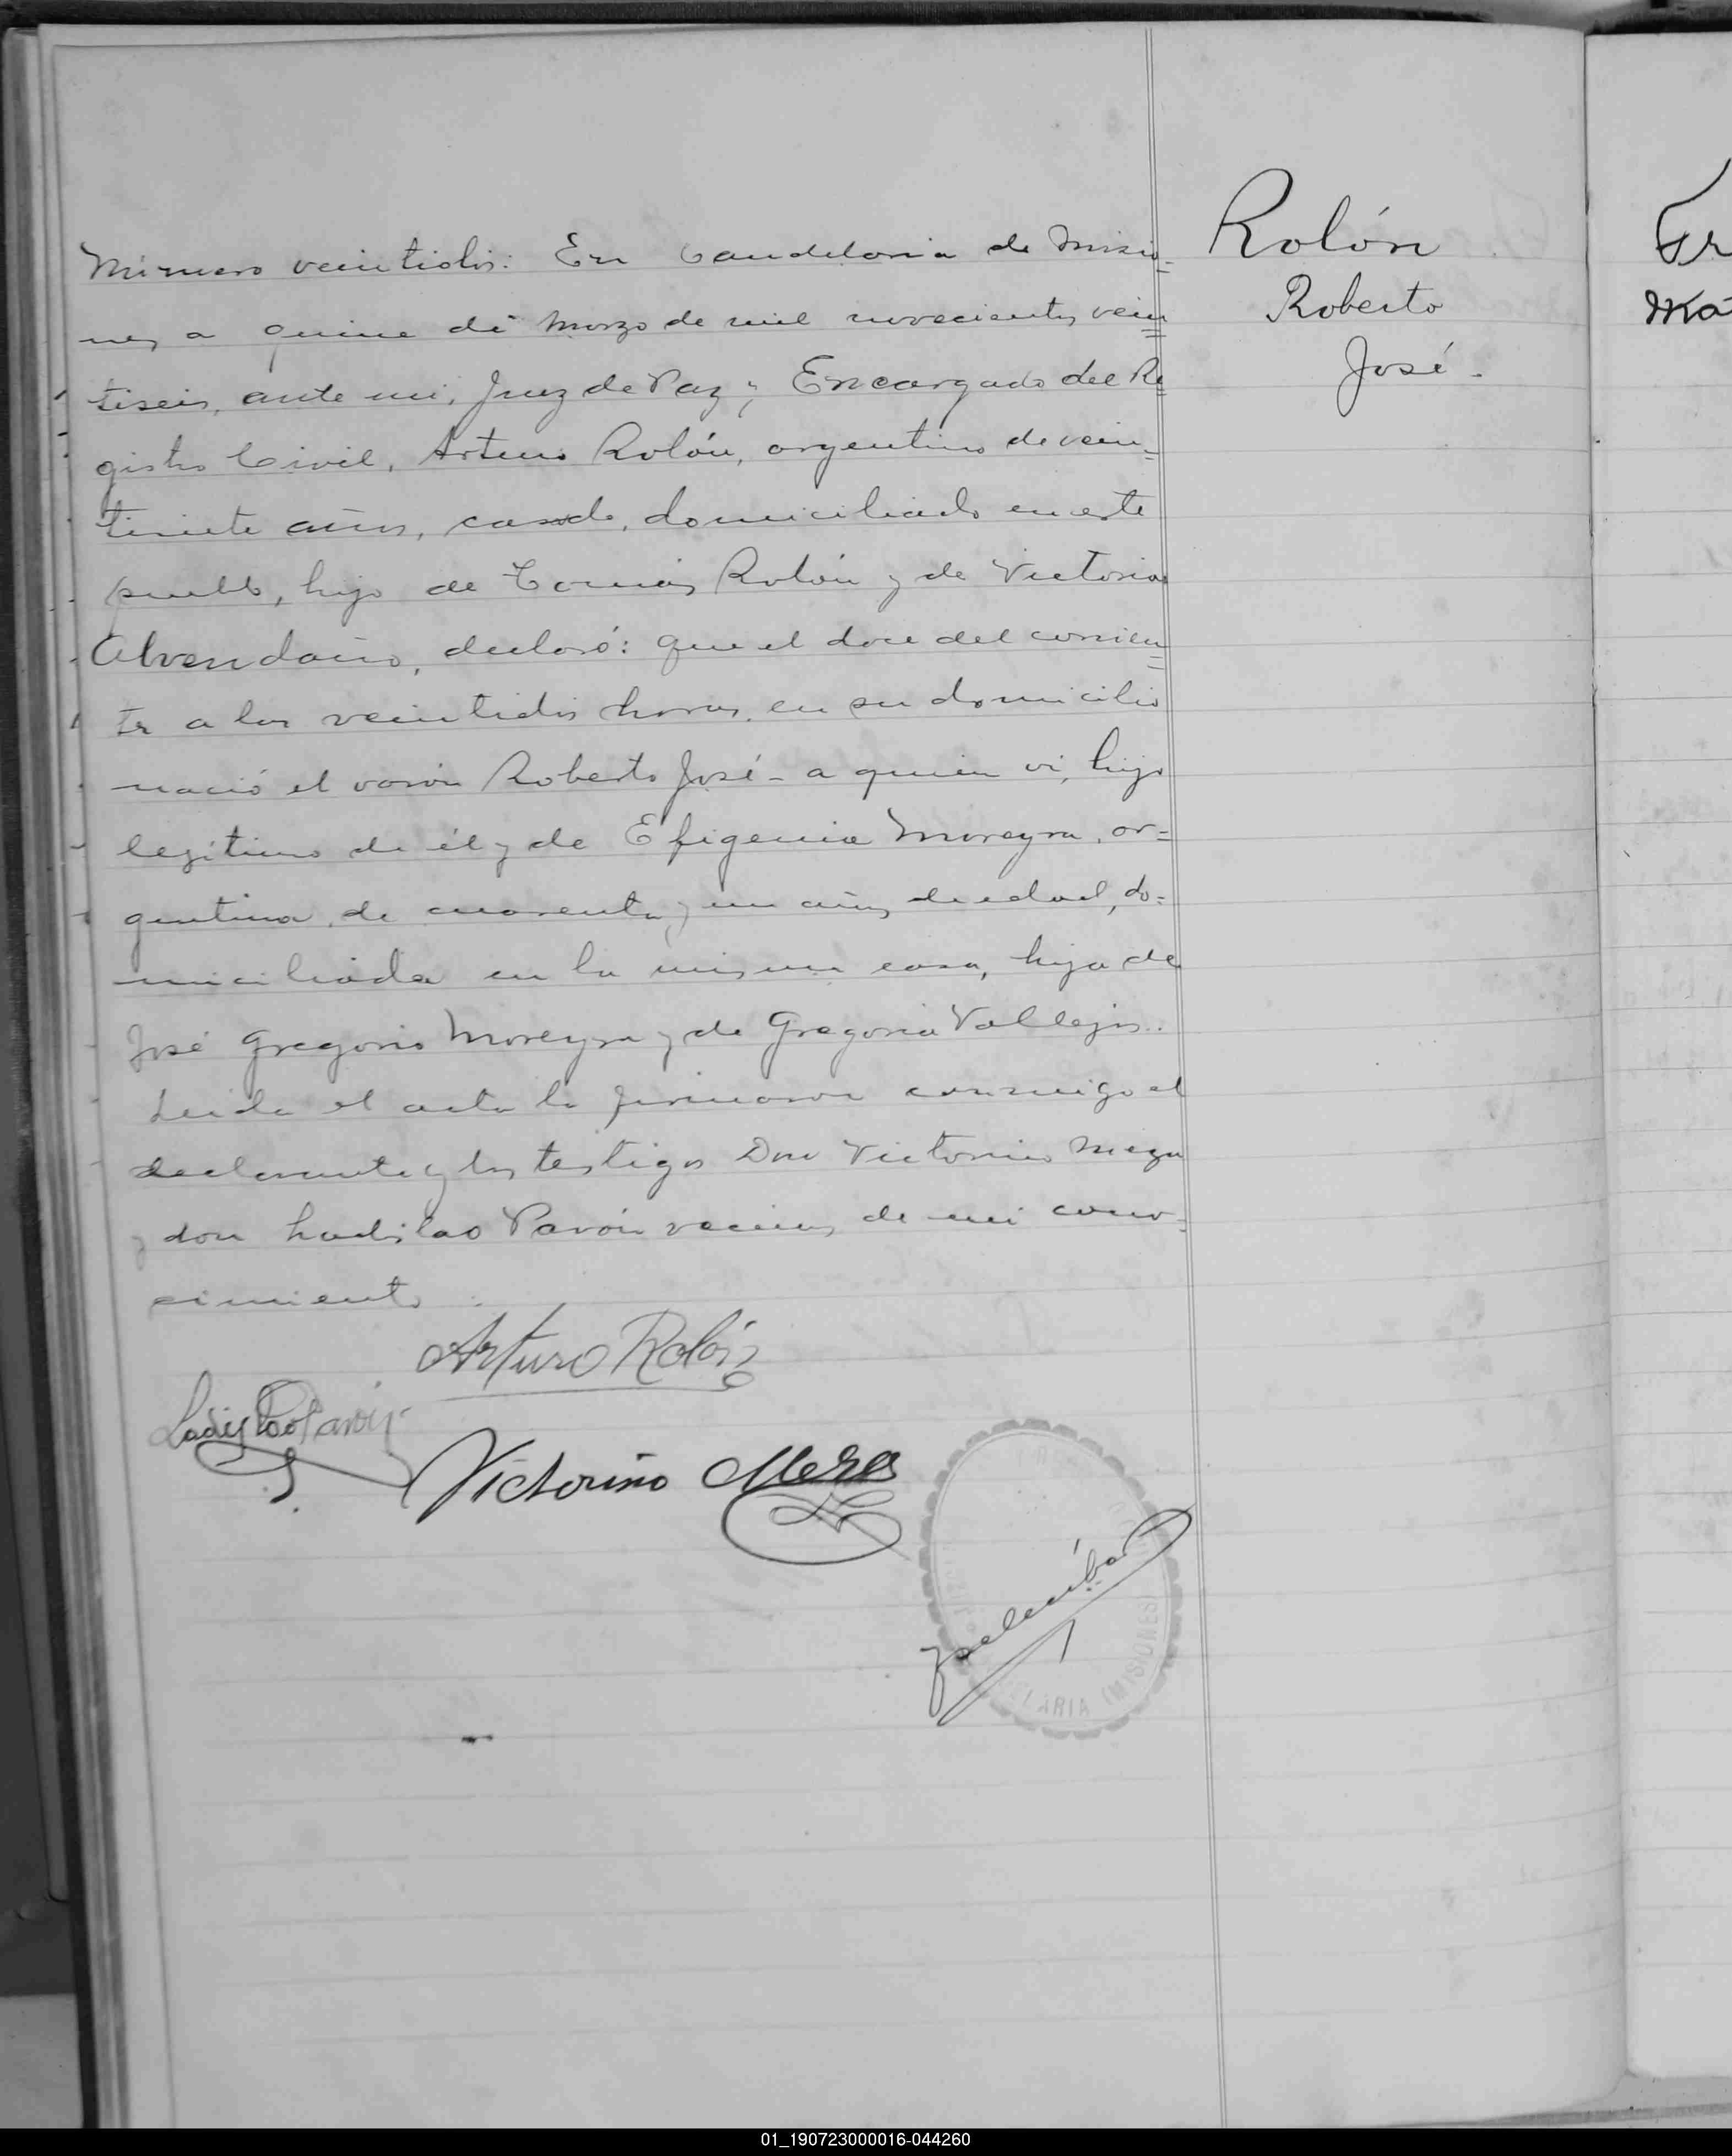 Número veintidos: En Candelaria de Misio=
nes a quince de Marzo de mil novecientos vein=
tiseis, ante mi, Juez de Paz y Encargado del Re=
gistro Civil, Arturo Rolón, argentino de vein=
tisiete años, casado, domiciliado en este
pueblo, hijo de Tomás Rolón y de Victoria
Alvendaño, declaró: Que el doce del corrien=
te a las veintidos horas, en su domicilio
nació el varón Roberto José - a quien vi, hijo
legítimo de él y de Efigenia Moreyra, ar=
gentina, de cuarenta y un años de edad, do=
miciliada en la misma casa, hija de
José Gregorio Moreyra y de Gregoria Vallejos..
Leida el acta la firmaron conmigo el
declarante y los testigos Don Victorino Meza
y don Ladislao Pavón vecinos de mi cono=
cimiento.
Rolón
Roberto
José.
Arturo Rolón
Ladislao Pavón
Victorino Meza
ELARIA (MISIONES)
Gr
Ma
01_190723000016-044260